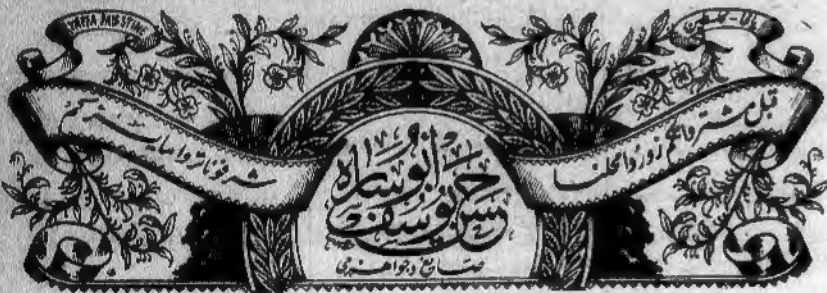 JAFFA PALESTINE
يافا - فلسطين
قبل مشترواتكم زوروا محلنا
شرفونا تروا ما يسركم
حسن يوسف أبو ساره
صايغ وجواهرجي